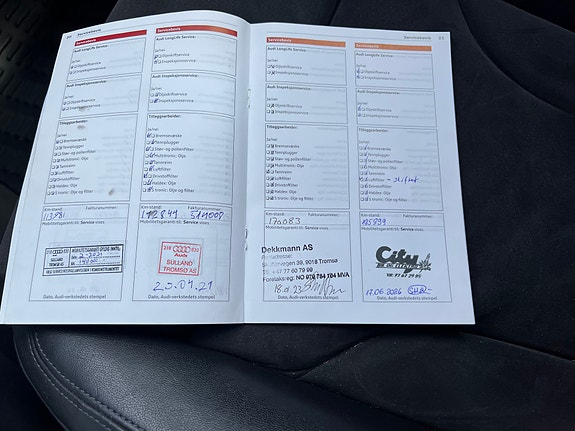 20 Servicebevis
Servicebevis
Audi LongLife Service:
Ja/nei
Oljeskiftservice
Inspeksjonsservice
Audi Inspeksjonsservice:
Ja/nei
Oljeskiftservice
Inspeksjonsservice
Tilleggsarbeider:
Ja/nei
Bremsevæske
Tennplugger
Støv- og pollenfilter
Multitronic: Olje
Tannreim
Luftfilter
Drivstoffilter
Haldex: Olje
S tronic: Olje og filter
Km-stand: Fakturanummer:
113881
Mobilitetsgaranti til: Service vises.
SULLAND
TROMSØ AS
Dato, Audi-verkstedets stempel
Servicebevis
Audi LongLife Service:
Ja/nei
Oljeskiftservice
Inspeksjonsservice
Audi Inspeksjonsservice:
Ja/nei
Oljeskiftservice
Inspeksjonsservice
Tilleggsarbeider:
Ja/nei
Bremsevæske
Tennplugger
Støv- og pollenfilter
Multitronic: Olje
Tannreim
Luftfilter
Drivstoffilter
Haldex: Olje
S tronic: Olje og filter
Km-stand: Fakturanummer:
Mobilitetsgaranti til: Service vises.
Audi
SULLAND
TROMSØ AS
Dato, Audi-verkstedets stempel
Servicebevis
Audi LongLife Service:
Ja/nei
Oljeskiftservice
Inspeksjonsservice
Audi Inspeksjonsservice:
Ja/nei
Oljeskiftservice
Inspeksjonsservice
Tilleggsarbeider:
Ja/nei
Bremsevæske
Tennplugger
Støv- og pollenfilter
Multitronic: Olje
Tannreim
Luftfilter
Drivstoffilter
Haldex: Olje
S tronic: Olje og filter
Km-stand: Fakturanummer:
170083
Mobilitetsgaranti til: Service vises.
Dekkmann AS
Tlf. +47 77 60 79 00
Foretaksreg: NO 970 784 104 MVA
Dato, Audi-verkstedets stempel
Servicebevis 21
Servicebevis
Audi LongLife Service:
Ja/nei
Oljeskiftservice
Inspeksjonsservice
Audi Inspeksjonsservice:
Ja/nei
Oljeskiftservice
Inspeksjonsservice
Tilleggsarbeider:
Ja/nei
Bremsevæske
Tennplugger
Støv- og pollenfilter
Multitronic: Olje
Tannreim
Luftfilter - skiftet
Drivstoffilter
Haldex: Olje
S tronic: Olje og filter
Km-stand: Fakturanummer:
Mobilitetsgaranti til: Service vises.
City
Dato, Audi-verkstedets stempel